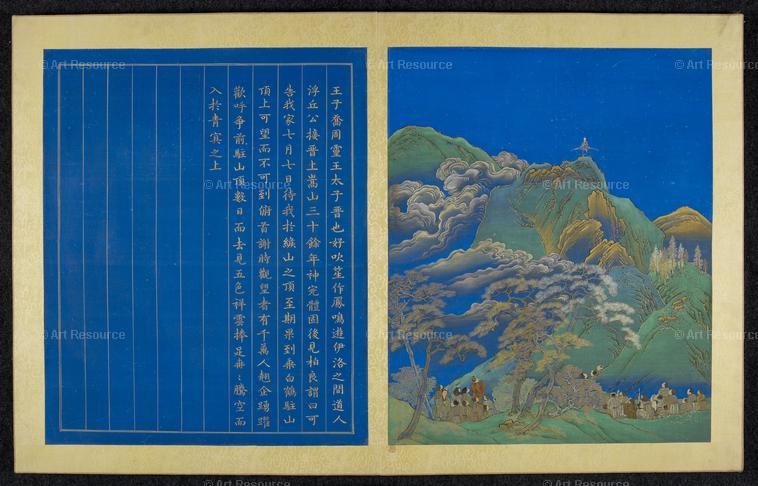 王子喬周靈王太子晉也好吹笙作鳳鳴遊伊洛之間道人
浮丘公接晉上嵩山三十餘年神完體固後見柏良謂曰可
告我家七月七日待我於緱山之頂至期果到乘白鶴駐山
頂上可望而不可到俯首謝時觀望者有千萬人翹企踴躍
歡呼爭前駐山頂數日而去見五色祥雲捧足冉冉騰空而
入於青冥之上
© Art Resource
© Art Resource
© Art Resource
© Art Resource
© Art Resource
© Art Resource
© Art Resource
© Art Resource
© Art Resource
© Art Resource
© Art Resource
© Art Resource